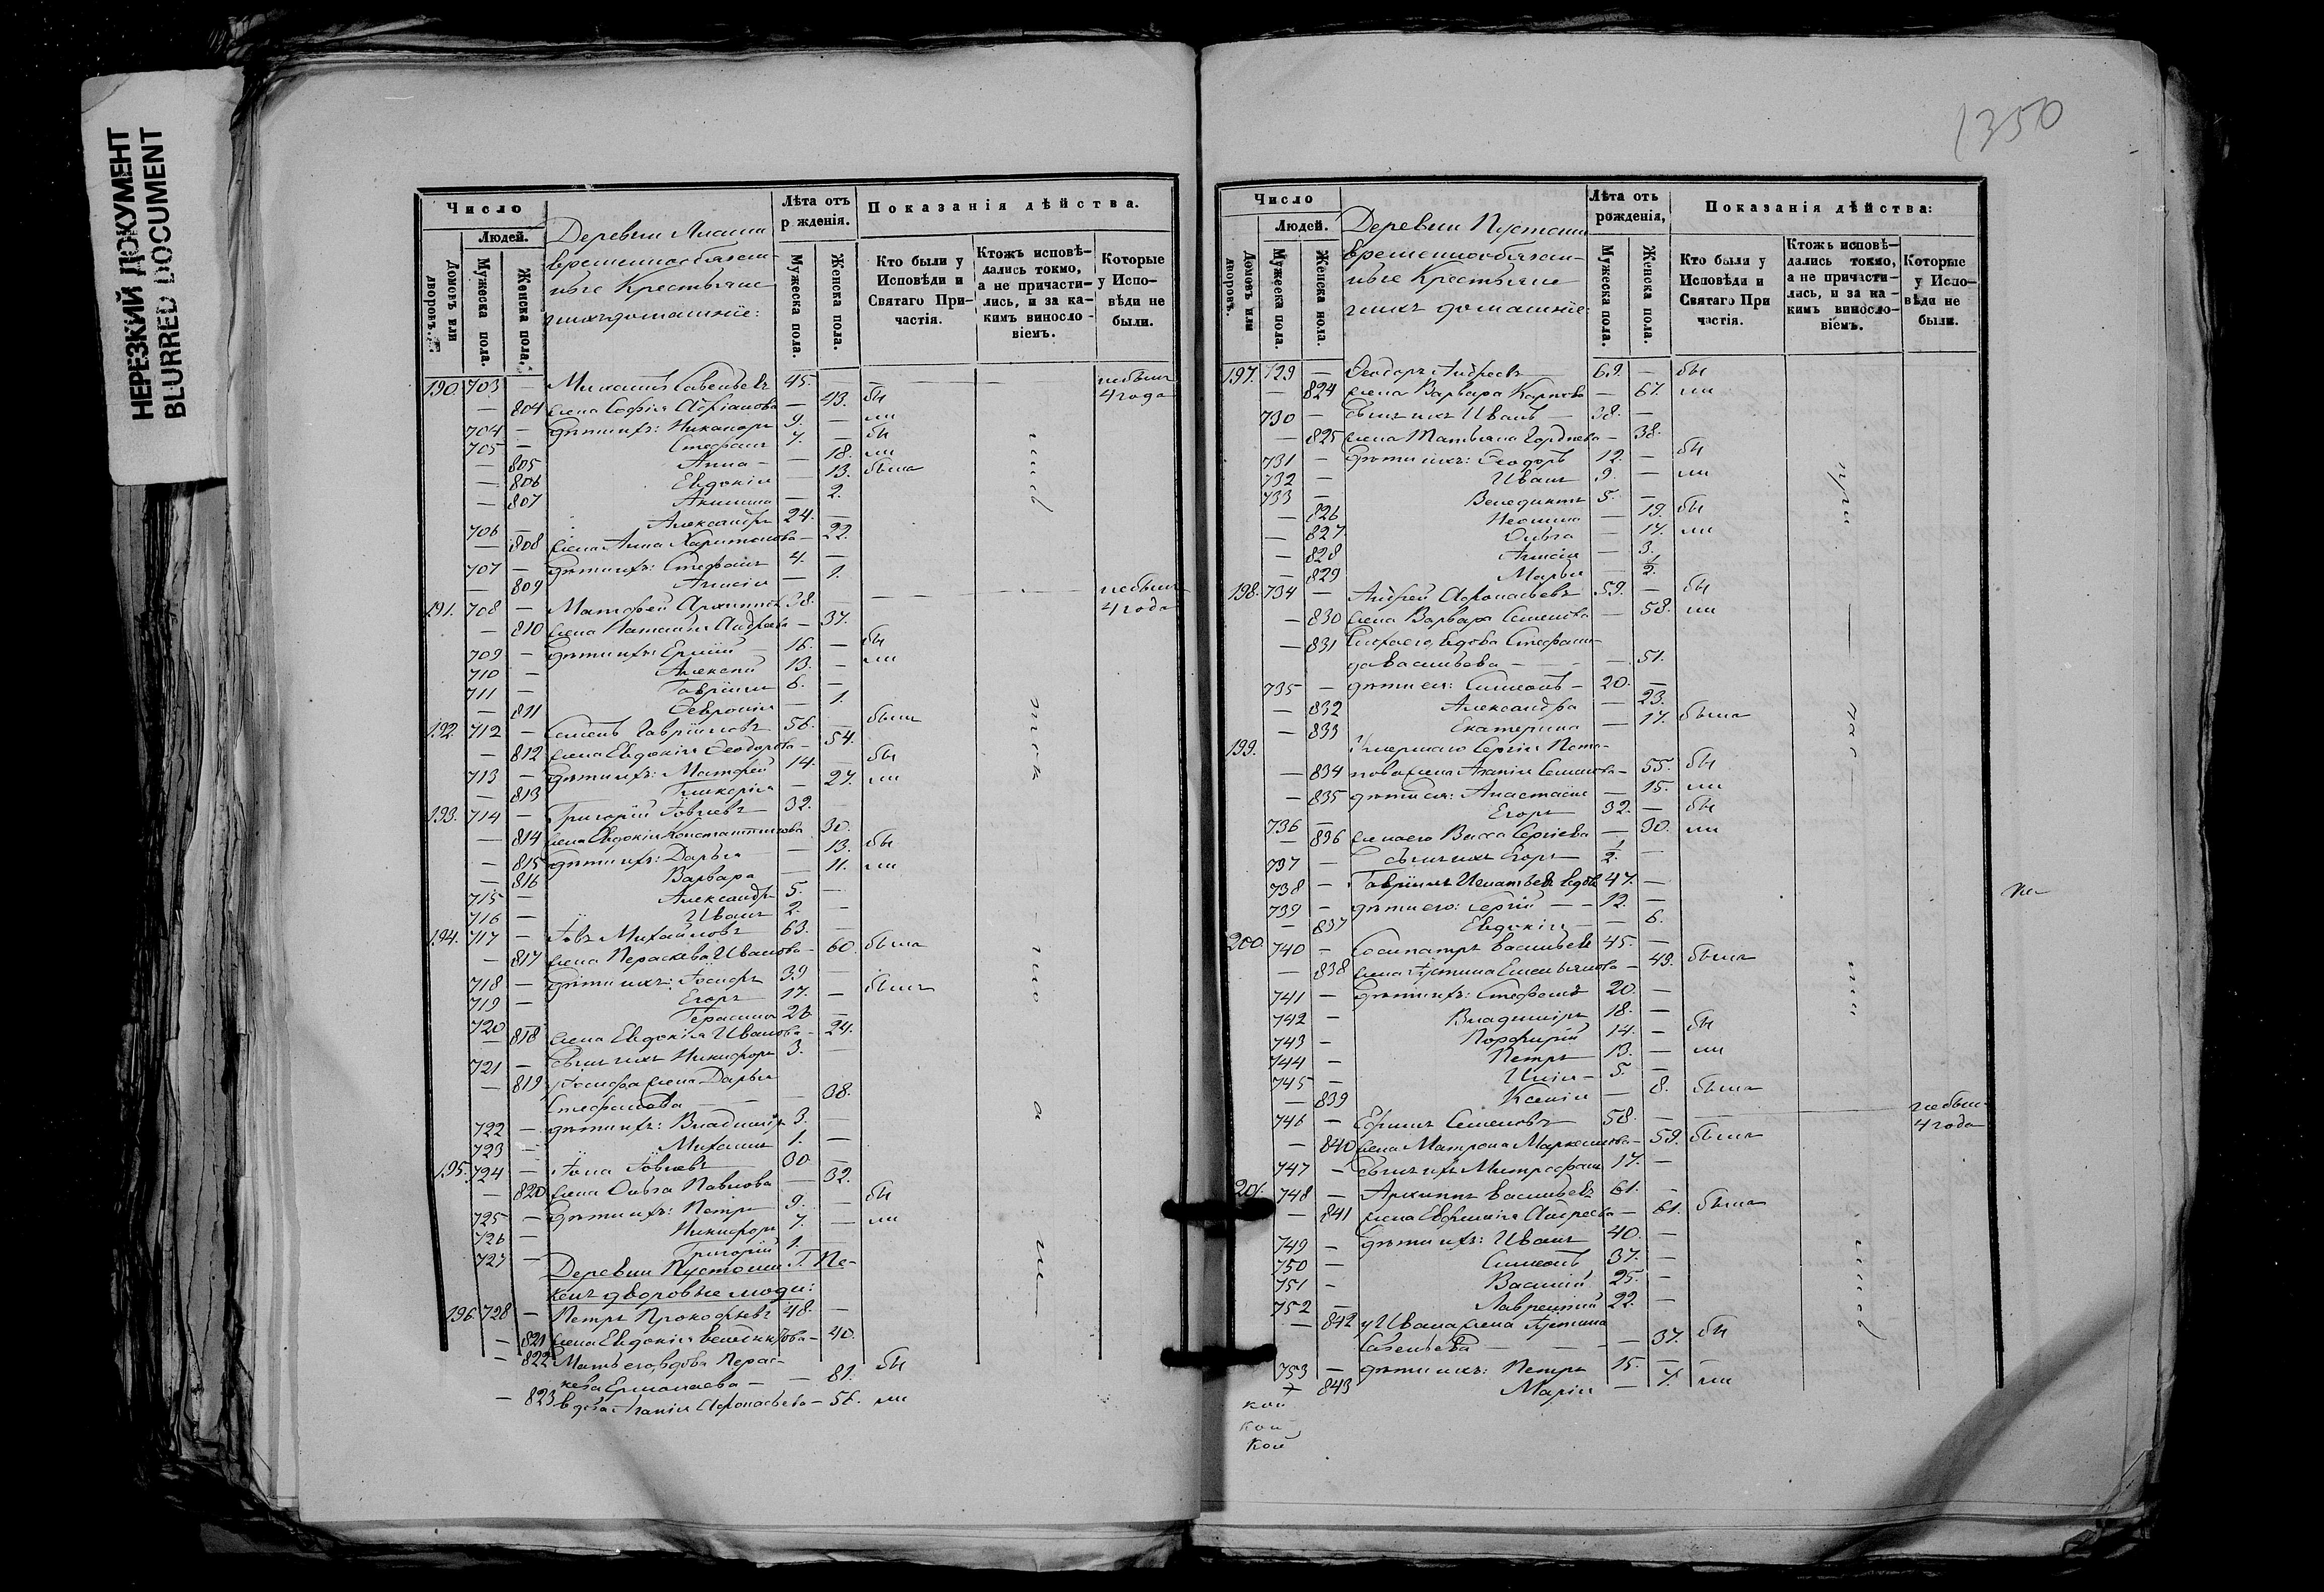 НЕРЕЗКИЙ ДОКУМЕНТ
BLURRED DOCUMENT
Число
Людей.
Домовъ или дворовъ.
Мужеска пола.
Женска пола.
Деревни
временнообязан-
ные Крестьяне
и ихъ домашніе:
Лѣта отъ
р жденія.
Мужеска пола.
Женска пола.
Показанія дѣйства.
Кто были у
Исповѣди и
Святаго При-
частія.
Ктожъ исповѣ-
дались токмо,
а не причасти-
лись, и за ка-
кимъ винosло-
віемъ.
Которые
у Испо-
вѣди не
были.
190. 703 — Михаилъ Савельевъ 45. — небылъ
4 года
— 804 жена его Софія Адріанова — 43. бы
704 — дѣти ихъ: Никаноръ 9. — ли
705 — Стефанъ 7. — бы
— 805 Анна — 18. ли
— 806 Евдокія — 13. была
— 807 Акилина — 2.
706 — Александръ 24. —
— 808 жена Анна Харитонова — 22.
707 — дѣти ихъ: Стефанъ 4. —
— 809 Анисія — 1.
191. 708 — Матфей Архиповъ 38. — небылъ
4 года
— 810 жена Наталія Андреева — 37.
709 — дѣти ихъ: Ермій 16. — бы
710 — Алексей 13. — ли
711 — Гавріилъ 6. —
— 811 Февронія — 1.
192. 712 — Семенъ Гавриловъ 56. — были
— 812 жена Евдокія Феодорова — 54.
713 — дѣти ихъ: Матфей 14. — бы
— 813 Гликерія — 27. ли
193. 714 — Григорій Іовлевъ 32. —
— 814 жена Евдокія Константинова — 30.
— 815 дѣти ихъ: Дарья — 13. бы
— 816 Варвара — 11. ли
715 — Александръ 5. —
716 — Иванъ 2. —
194. 717 — Іовъ Михайловъ 63. —
— 817 жена Параскева Иванова — 60. была
718 — дѣти ихъ: Іосифъ 39. —
719 — Егоръ 17. — былъ
720 — Герасимъ 26 —
— 818 жена Евдокія Иванова — 24.
721 — сынъ ихъ Никифоръ 3. —
— 819 Іосифа жена Дарья
Стефанова — 38.
722 — дѣти ихъ: Владиміръ 3. —
723 — Михаилъ 1. —
195. 724 — Іона Іовлевъ 30 —
— 820 жена Ольга Павлова — 32.
725 — дѣти ихъ: Петръ 9. — бы
726 — Никифоръ 7. — ли
727 — Григорій 1. —
Деревни Пустоши Г. Пе-
кенъ дворовые люди:
196. 728 — Петръ Прокофьевъ 48. —
— 821 жена Евдокія — 40.
— 822 Мать его, вдова Парас-
кева Ермолаева — 81. бы
— 823 вдова Агапія Афонасьева — 56. ли
1350
Число
Людей.
Домовъ или дворовъ.
Мужеска пола.
Женска пола.
Деревни Пустоши
временнообязан-
ные Крестьяне
и ихъ домашніе:
Лѣта отъ
рожденія,
Мужеска пола.
Женска пола.
Показанія дѣйства:
Кто были у
Исповѣди и
Святаго При
частія.
Ктожъ исповѣ-
дались токмо,
а не причасти-
лись, и за ка-
кимъ винosло-
віемъ.
Которые
у Испо-
вѣди не
были.
197. 729 — Феодоръ Андреевъ 69. — бы
— 824 жена Варвара Карпова — 67. ли
730 — сынъ ихъ Иванъ — 38. —
— 825 жена Татьяна Гордѣева — 38.
731 — дѣти ихъ: Феодоръ 12. — бы
732 — Иванъ 9. — ли
733 — Венедиктъ 5. —
— 826 Неонила — 19. бы
— 827 Ольга — 17. ли
— 828 Анисія — 3.
— 829 Марья — 1/2.
198. 734 — Андрей Афонасьевъ 59. — бы
— 830 жена Варвара Семенова — 58. ли
— 831 Сноха его, вдова Стефани-
да Васильева — 51.
735 — дѣти ея: Симеонъ — 20. —
— 832 Александра — 23.
— 833 Екатерина — 17. была
199. Умершаго Сергія Пота-
— 834 пова жена Агапія Семенова — 55. бы
— 835 дѣти ея: Анастасія — 15. ли
736 — Егоръ 32. — бы
— 836 жена его Васса Сергіева — 30. ли
737 — сынъ ихъ Егоръ 1/2. —
738 — Гавріилъ Игнатьевъ вдовъ 47. —
739 — дѣти его: Сергій — 12. —
— 837 Евдокія — 6.
200. 740 — Сосипатръ Васильевъ 45. —
— 838 жена Іустина Емельянова — 43. была
741 — дѣти ихъ: Стефанъ 20. —
742 — Владиміръ 18. —
743 — Порфирій 14. — бы
744 — Петръ 13. — ли
745 — Илія — 5. —
— 839 Ксенія — 8. была
746 — Ефимъ Семеновъ 58. — небылъ
4 года
— 840 жена Матрона — 59. была
747 — сынъ ихъ Митрофанъ 17. —
201. 748 — Архипъ Васильевъ 61. —
— 841 жена Евфимія Андреева — 61. была
749 — дѣти ихъ: Иванъ 40. —
750 — Симеонъ 37. —
751 — Василій 25. —
752 — Лаврентій 22. —
— 842 у Ивана жена Іустина
Савельева — 37. бы
753 — дѣти ихъ: Петръ 15. —
— 843 Марія — 7. ли
кой
кой
кой